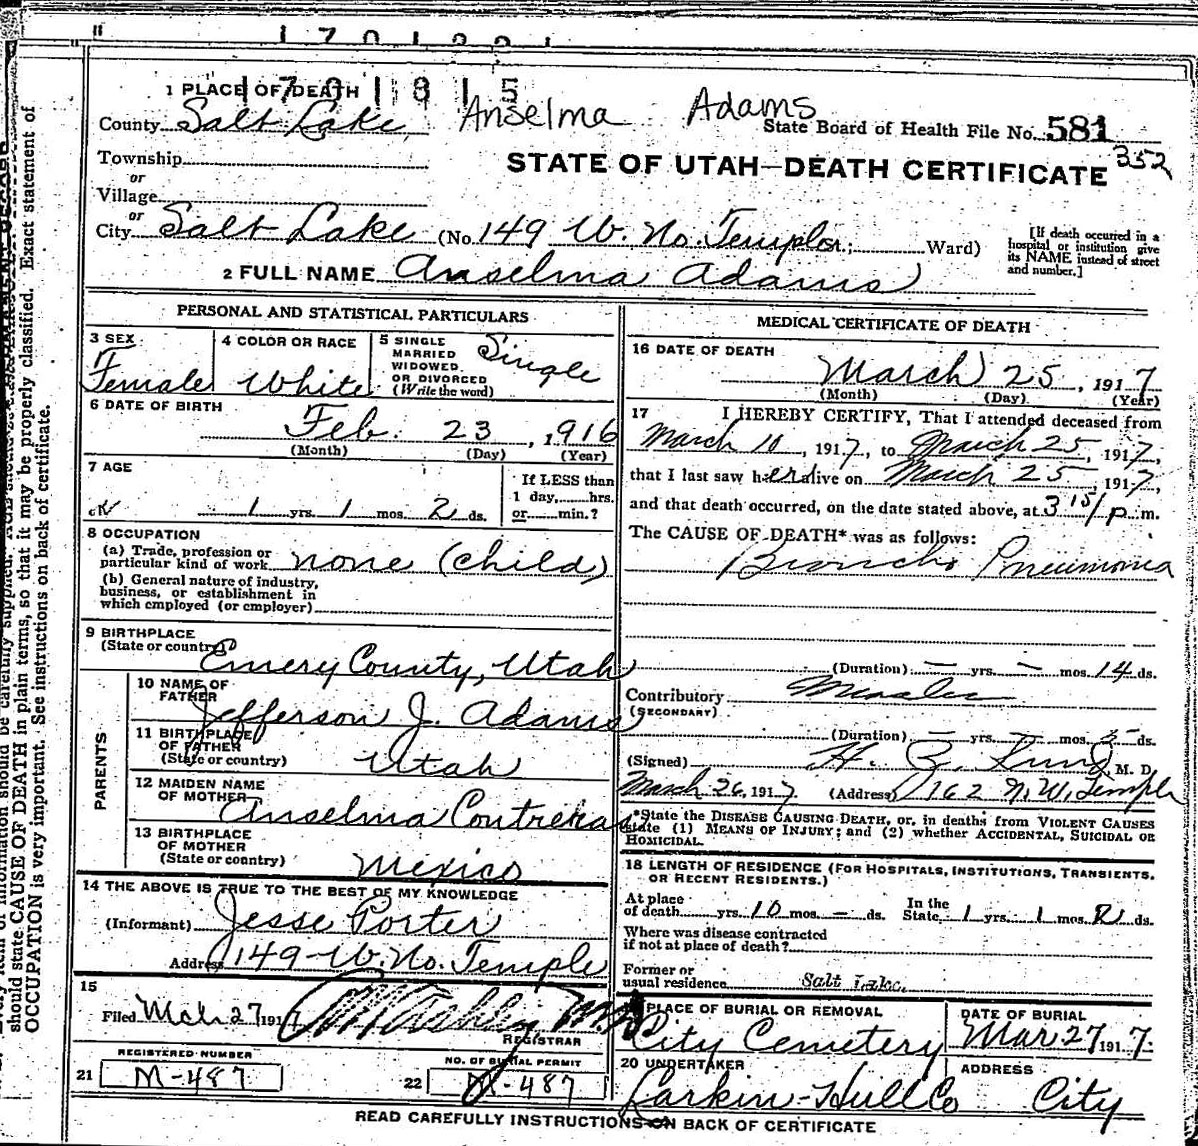 1701815
1 PLACE OF DEATH
County Salt Lake Anselma Adams
State Board of Health File No. 581
352
Township
or
Village
or
City Salt Lake (No. 149 W. No. Temple St.; Ward)
[If death occurred in a hospital or institution give its NAME instead of street and number.]
STATE OF UTAH—DEATH CERTIFICATE
2 FULL NAME Anselma Adams
PERSONAL AND STATISTICAL PARTICULARS
3 SEX
Female
4 COLOR OR RACE
White
5 SINGLE
MARRIED
WIDOWED
OR DIVORCED
(Write the word)
Single
6 DATE OF BIRTH
Feb. 23, 1916
(Month) (Day) (Year)
7 AGE
1 yrs. 1 mos. 2 ds.
If LESS than
1 day,......hrs.
or......min.?
8 OCCUPATION
(a) Trade, profession or
particular kind of work none (child)
(b) General nature of industry,
business, or establishment in
which employed (or employer)
9 BIRTHPLACE
(State or country)
Emery County, Utah
PARENTS
10 NAME OF
FATHER
Jefferson J. Adams
11 BIRTHPLACE
OF FATHER
(State or country)
Utah
12 MAIDEN NAME
OF MOTHER
Anselma Contreras
13 BIRTHPLACE
OF MOTHER
(State or country)
Mexico
14 THE ABOVE IS TRUE TO THE BEST OF MY KNOWLEDGE
(Informant) Jesse Porter
Address 149 W. No. Temple
15
Filed Mch 27 1917
REGISTRAR
REGISTERED NUMBER
21 M-487
NO. OF BURIAL PERMIT
22 M-487
MEDICAL CERTIFICATE OF DEATH
16 DATE OF DEATH
March 25, 1917
(Month) (Day) (Year)
17 I HEREBY CERTIFY, That I attended deceased from
March 10, 1917, to March 25, 1917,
that I last saw her alive on March 25, 1917,
and that death occurred, on the date stated above, at 3 15/ p. m.
The CAUSE OF DEATH* was as follows:
Broncho Pneumonia
(Duration) — yrs. — mos. 14 ds.
Contributory Measles
(SECONDARY)
(Duration) — yrs. — mos. ds.
(Signed) M. D.
March 26, 1917 (Address) 162 N. W. Temple
*State the DISEASE CAUSING DEATH, or, in deaths from VIOLENT CAUSES
state (1) MEANS OF INJURY; and (2) whether ACCIDENTAL, SUICIDAL OR
HOMICIDAL.
18 LENGTH OF RESIDENCE (FOR HOSPITALS, INSTITUTIONS, TRANSIENTS,
OR RECENT RESIDENTS.)
At place
of death yrs. 10 mos. — ds.
In the
State 1 yrs. 1 mos. 2 ds.
Where was disease contracted
if not at place of death?
Former or
usual residence Salt Lake.
PLACE OF BURIAL OR REMOVAL
City Cemetery
DATE OF BURIAL
Mar 27 1917.
20 UNDERTAKER
Larkin-Hull Co
ADDRESS
City
READ CAREFULLY INSTRUCTIONS ON BACK OF CERTIFICATE
should state CAUSE OF DEATH in plain terms, so that it may be properly classified. Exact statement of
OCCUPATION is very important. See instructions on back of certificate.